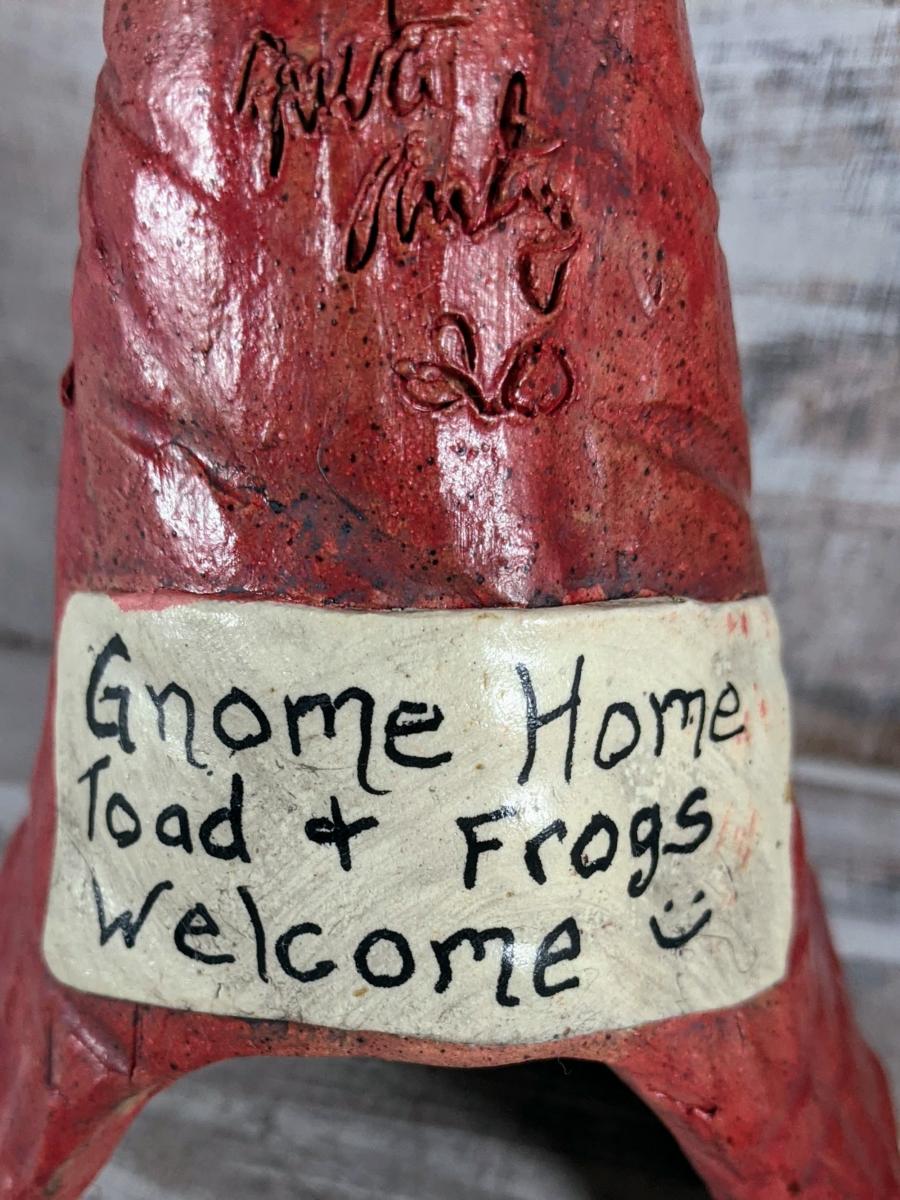 Gnome Home
Toad & Frogs
Welcome